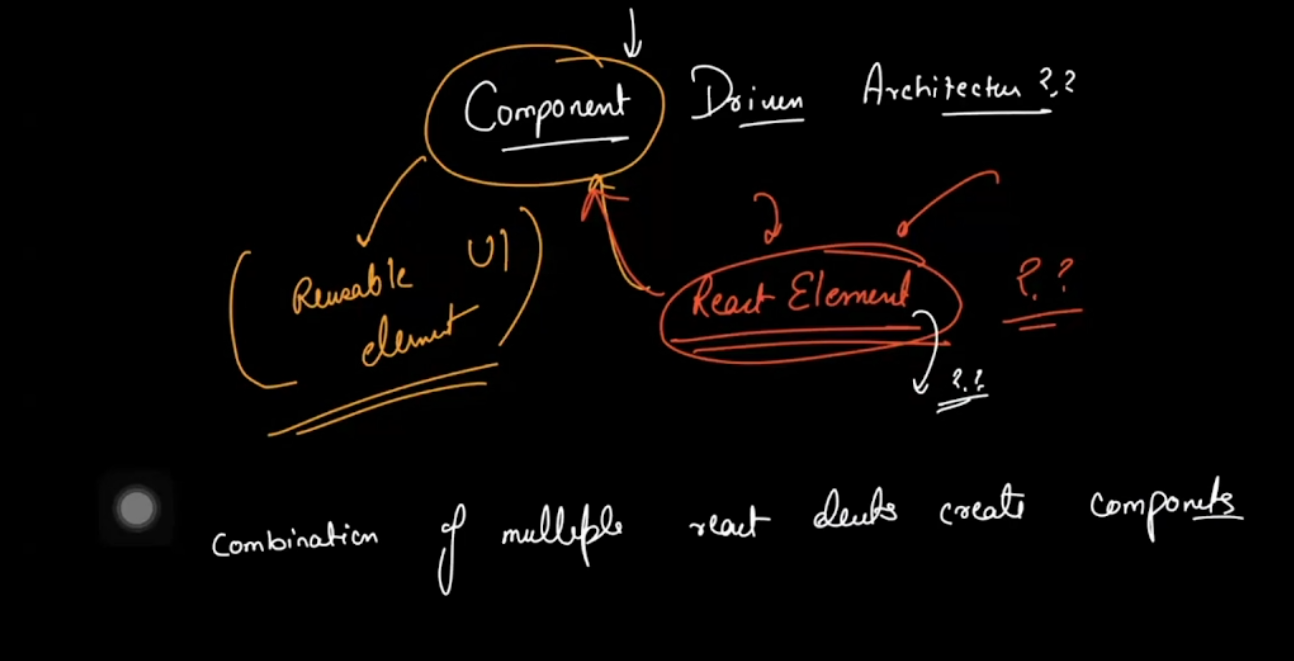 Component Driven Architectur ??
Reusable UI
element
React Element ??
??
Combination of multiple react elements create components